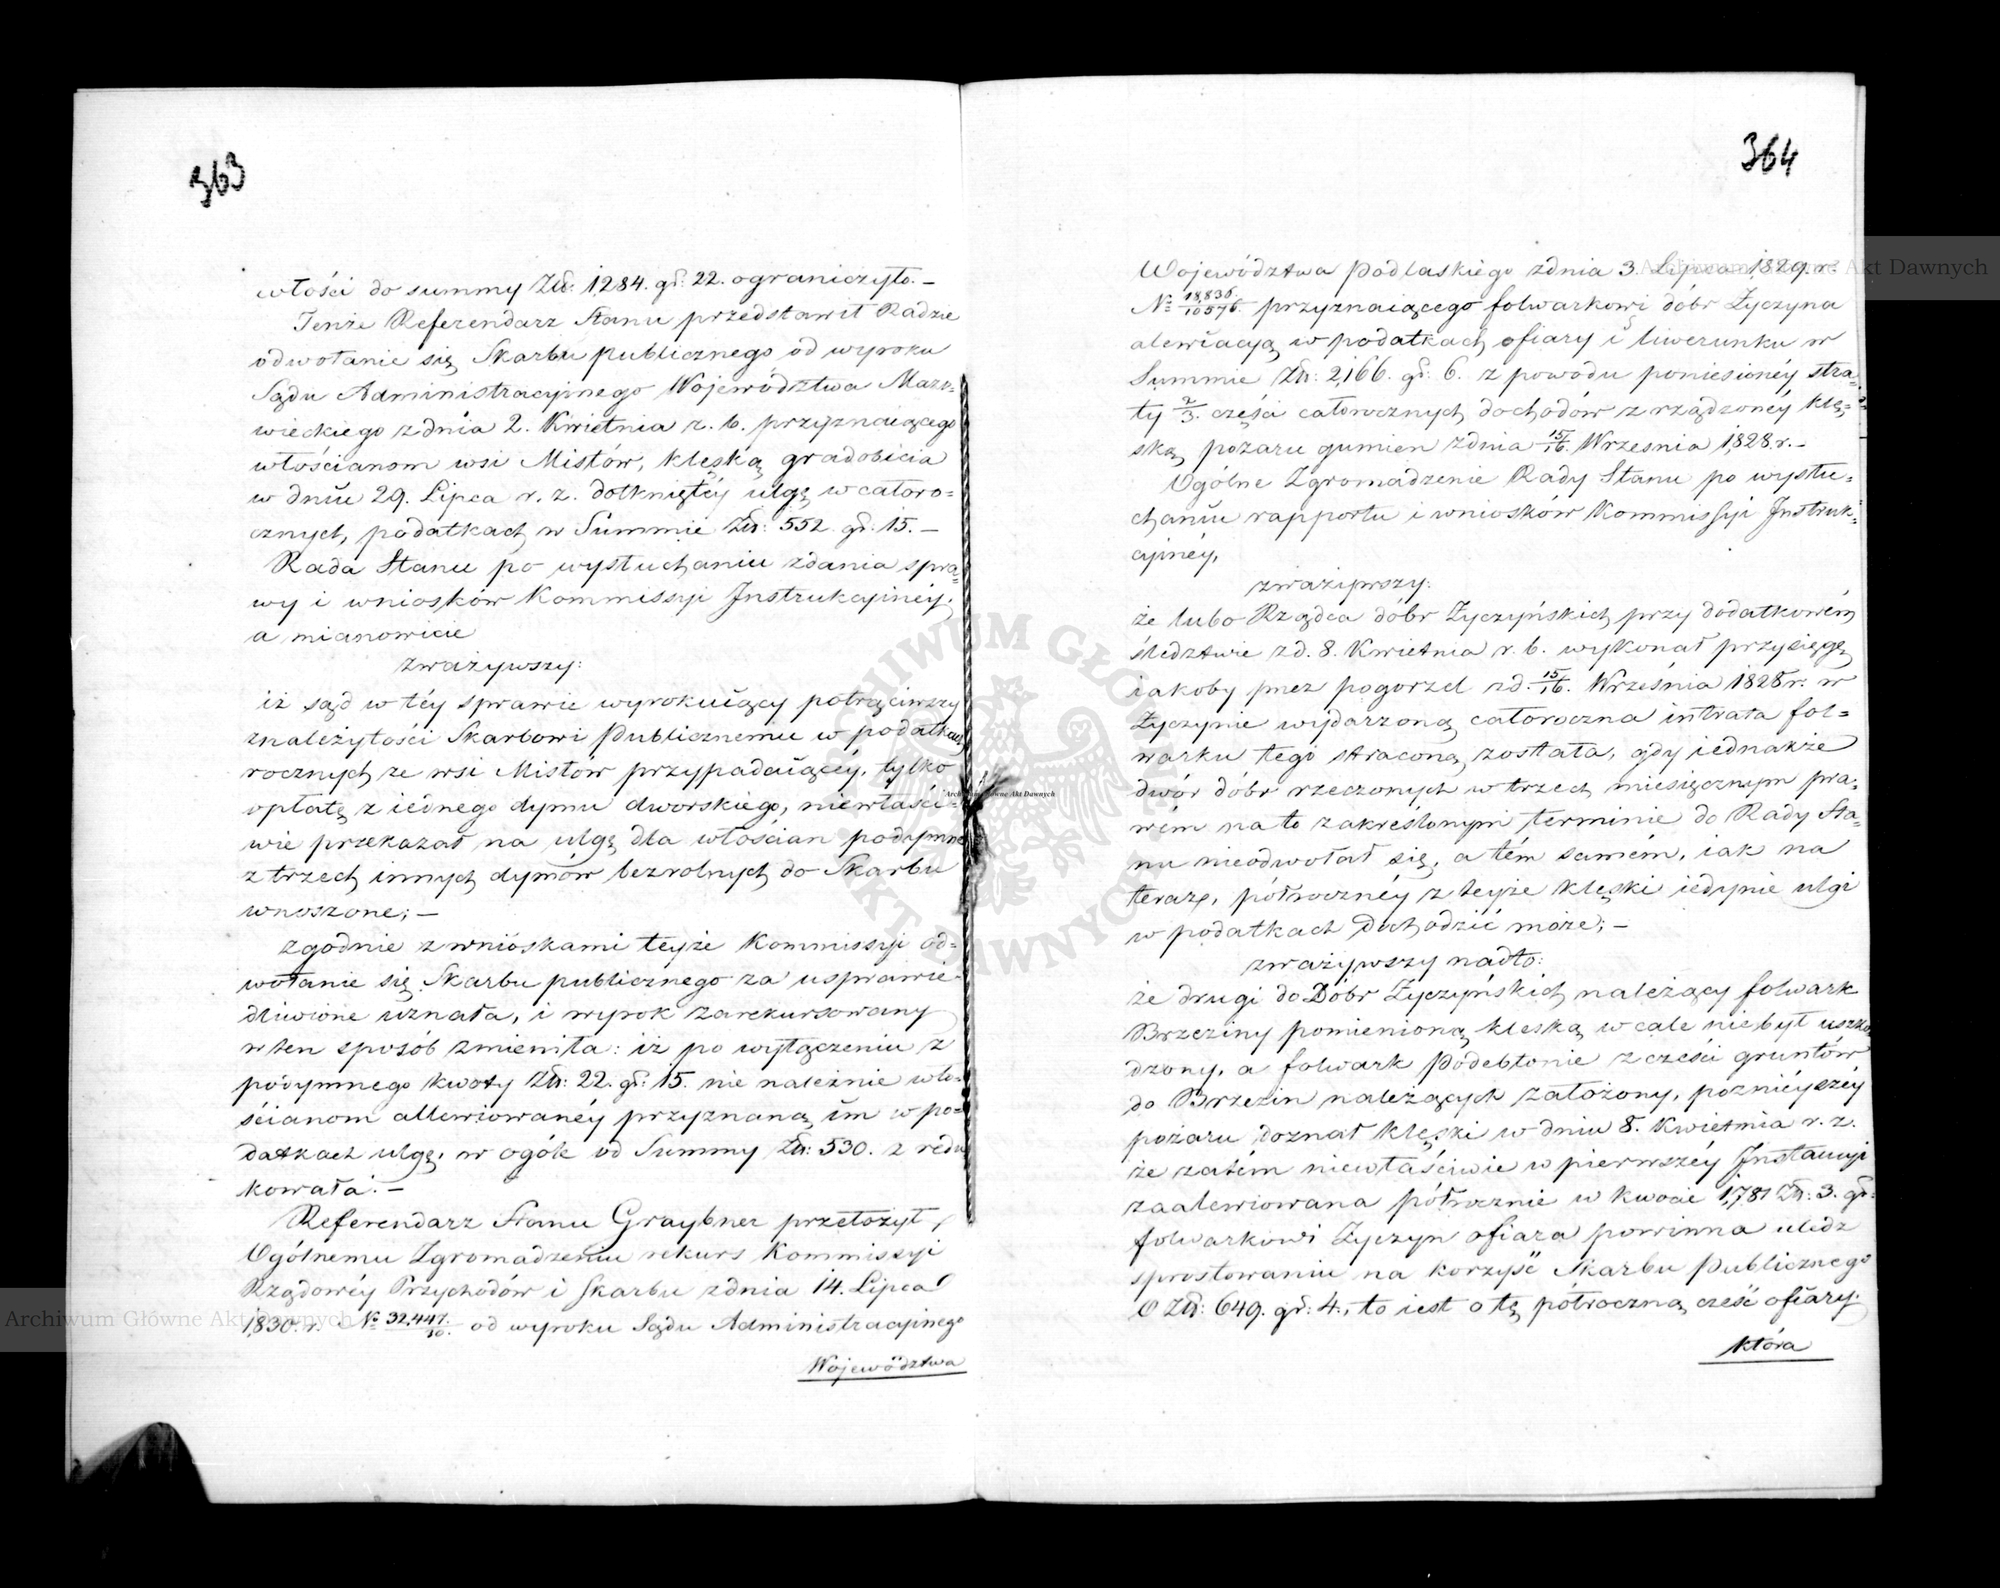 363
włości do summy Zł: 1284. gr: 22. ograniczyło. –
Tenże Referendarz Stanu przedstawił Radzie
odwołanie się Skarbu publicznego od wyroku
Sądu Administracyjnego Województwa Mazo-
wieckiego z dnia 2. Kwietnia r. b. przyznaiącego
włościanom wsi Mistów, klęską gradobicia
w dniu 29. Lipca r. z. dotkniętéy ulgę w całoro=
cznych podatkach w Summie Zł: 552 gr: 15. –
Rada Stanu po wysłuchaniu zdania spra=
wy i wniosków Kommissyi Instrukcyinéy,
a mianowicie
zważywszy:
iż sąd w téy sprawie wyrokuiący potrąciwszy
znależytości Skarbowi Publicznemu w podatkach
rocznych ze wsi Mistów przypadaiącéy, tylko
opłatę z iednego dymu dworskiego, niewłaści-
wie przekazał na ulgę dla włościan podymne
z trzech innych dymów bezrolnych do Skarbu
wnoszone; –
zgodnie z wnioskami teyże Kommissyi od=
wołanie się Skarbu publicznego za usprawie-
dliwione uznała, i wyrok zarekursowany
w ten sposób zmieniła: iż po wyłączeniu z
podymnego kwoty Zł: 22. gr: 15. nie należnie wło-
ścianom allewiowanéy przyznaną im w po=
datkach ulgę, w ogóle od Summy Zł: 530. zredu
kowała. –
Referendarz Stanu Graybner przełożył
Ogólnemu Zgromadzeniu rekurs Kommissyi
Rządowéy Przychodów i Skarbu z dnia 14. Lipca
1830. r. No 32,447/10. od wyroku Sądu Administracyinego
Województwa
364
Województwa Podlaskiego z dnia 3. Lipca 1829. r.
No 18,836./10576. przyznaiącego folwarkowi dóbr Życzyna
alewiacyą w podatkach ofiary i liwerunku w
Summie Zł: 2,166. gr: 6. z powodu poniesionéy stra-
ty 2/3. części całorocznych dochodów zrządzonéy klę-
ską pożaru gumien z dnia 15/16. Września 1828. r. –
Ogólne Zgromadzenie Rady Stanu po wysłu-
chaniu rapportu i wniosków Kommissyi Instruk-
cyinéy,
zważywszy:
że lubo Rządca dóbr Życzyńskich przy dodatkowém
śledztwie z d. 8. Kwietnia r. b. wykonał przysięgę
iakoby przez pogorzel z d. 15/16. Września 1828 r. w
Życzynie wydarzoną całoroczna intrata fol=
warku tego straconą została, gdy iednakże
dwór dóbr rzeczonych w trzech miesięcznym pra-
wém na to zakreślonym terminie do Rady Sta-
nu nieodwołał się, a tém samém, iak na
teraz, półrocznéy z teyże klęski iedynie ulgi
w podatkach dochodzić może; –
zważywszy nadto:
że drugi do Dóbr Życzyńskich należący folwark
Brzeziny pomienioną klęską wcale niebył uszko
dzony, a folwark Podebłonie z części gruntów
do Brzezin należących założony, poznieyszéy
pożaru doznał klęski w dniu 8. Kwietnia r. z.
że zatém niewłaściwie w pierwszéy Instancyi
zaalewiowana półrocznie w kwocie 1,781 Zł: 3. gr:
folwarkowi Życzyn ofiara powinna uledz
sprostowaniu na korzyść Skarbu Publicznego
o Zł: 649. gr: 4., to iest o tę półroczną cześć ofiary.
która
Archiwum Główne Akt Dawnych
Archiwum Główne Akt Dawnych
Archiwum Główne Akt Dawnych
ARCHIWUM GŁÓWNE AKT DAWNYCH